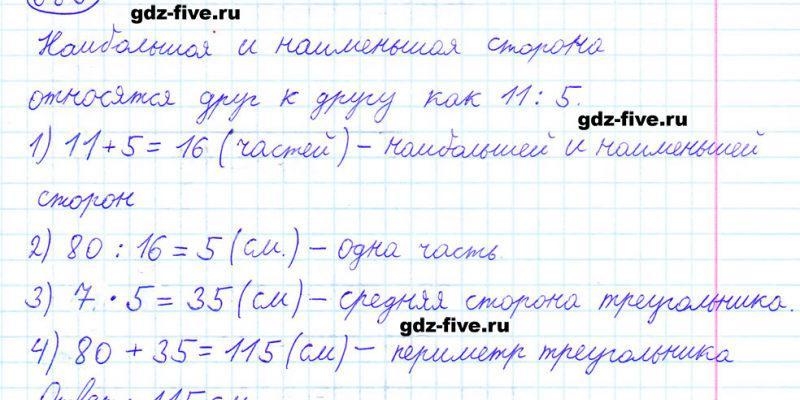 gdz-five.ru
Наибольшая и наименьшая сторона
относятся друг к другу как 11 : 5.
gdz-five.ru
1) 11 + 5 = 16 (частей) – наибольшей и наименьшей
сторон
2) 80 : 16 = 5 (см.) – одна часть
3) 7 · 5 = 35 (см) – средняя сторона треугольника.
gdz-five.ru
4) 80 + 35 = 115 (см) – периметр треугольника